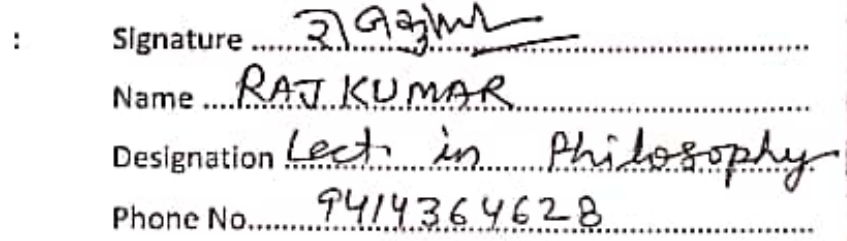 : Signature ..... राजकुमार
Name ..... RAJ KUMAR
Designation Lect. in Philosophy
Phone No..... 9414364628